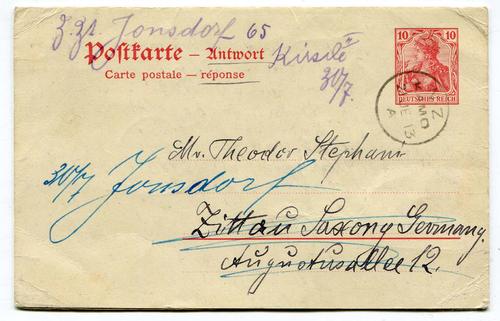 z. Zt. Jonsdorf 65
Postkarte – Antwort
Carte postale – réponse
30/7.
10 10
DEUTSCHES REICH
Mr. Theodor Stephan
30/7 Jonsdorf
Zittau Saxony Germany.
Augustusallee 12.